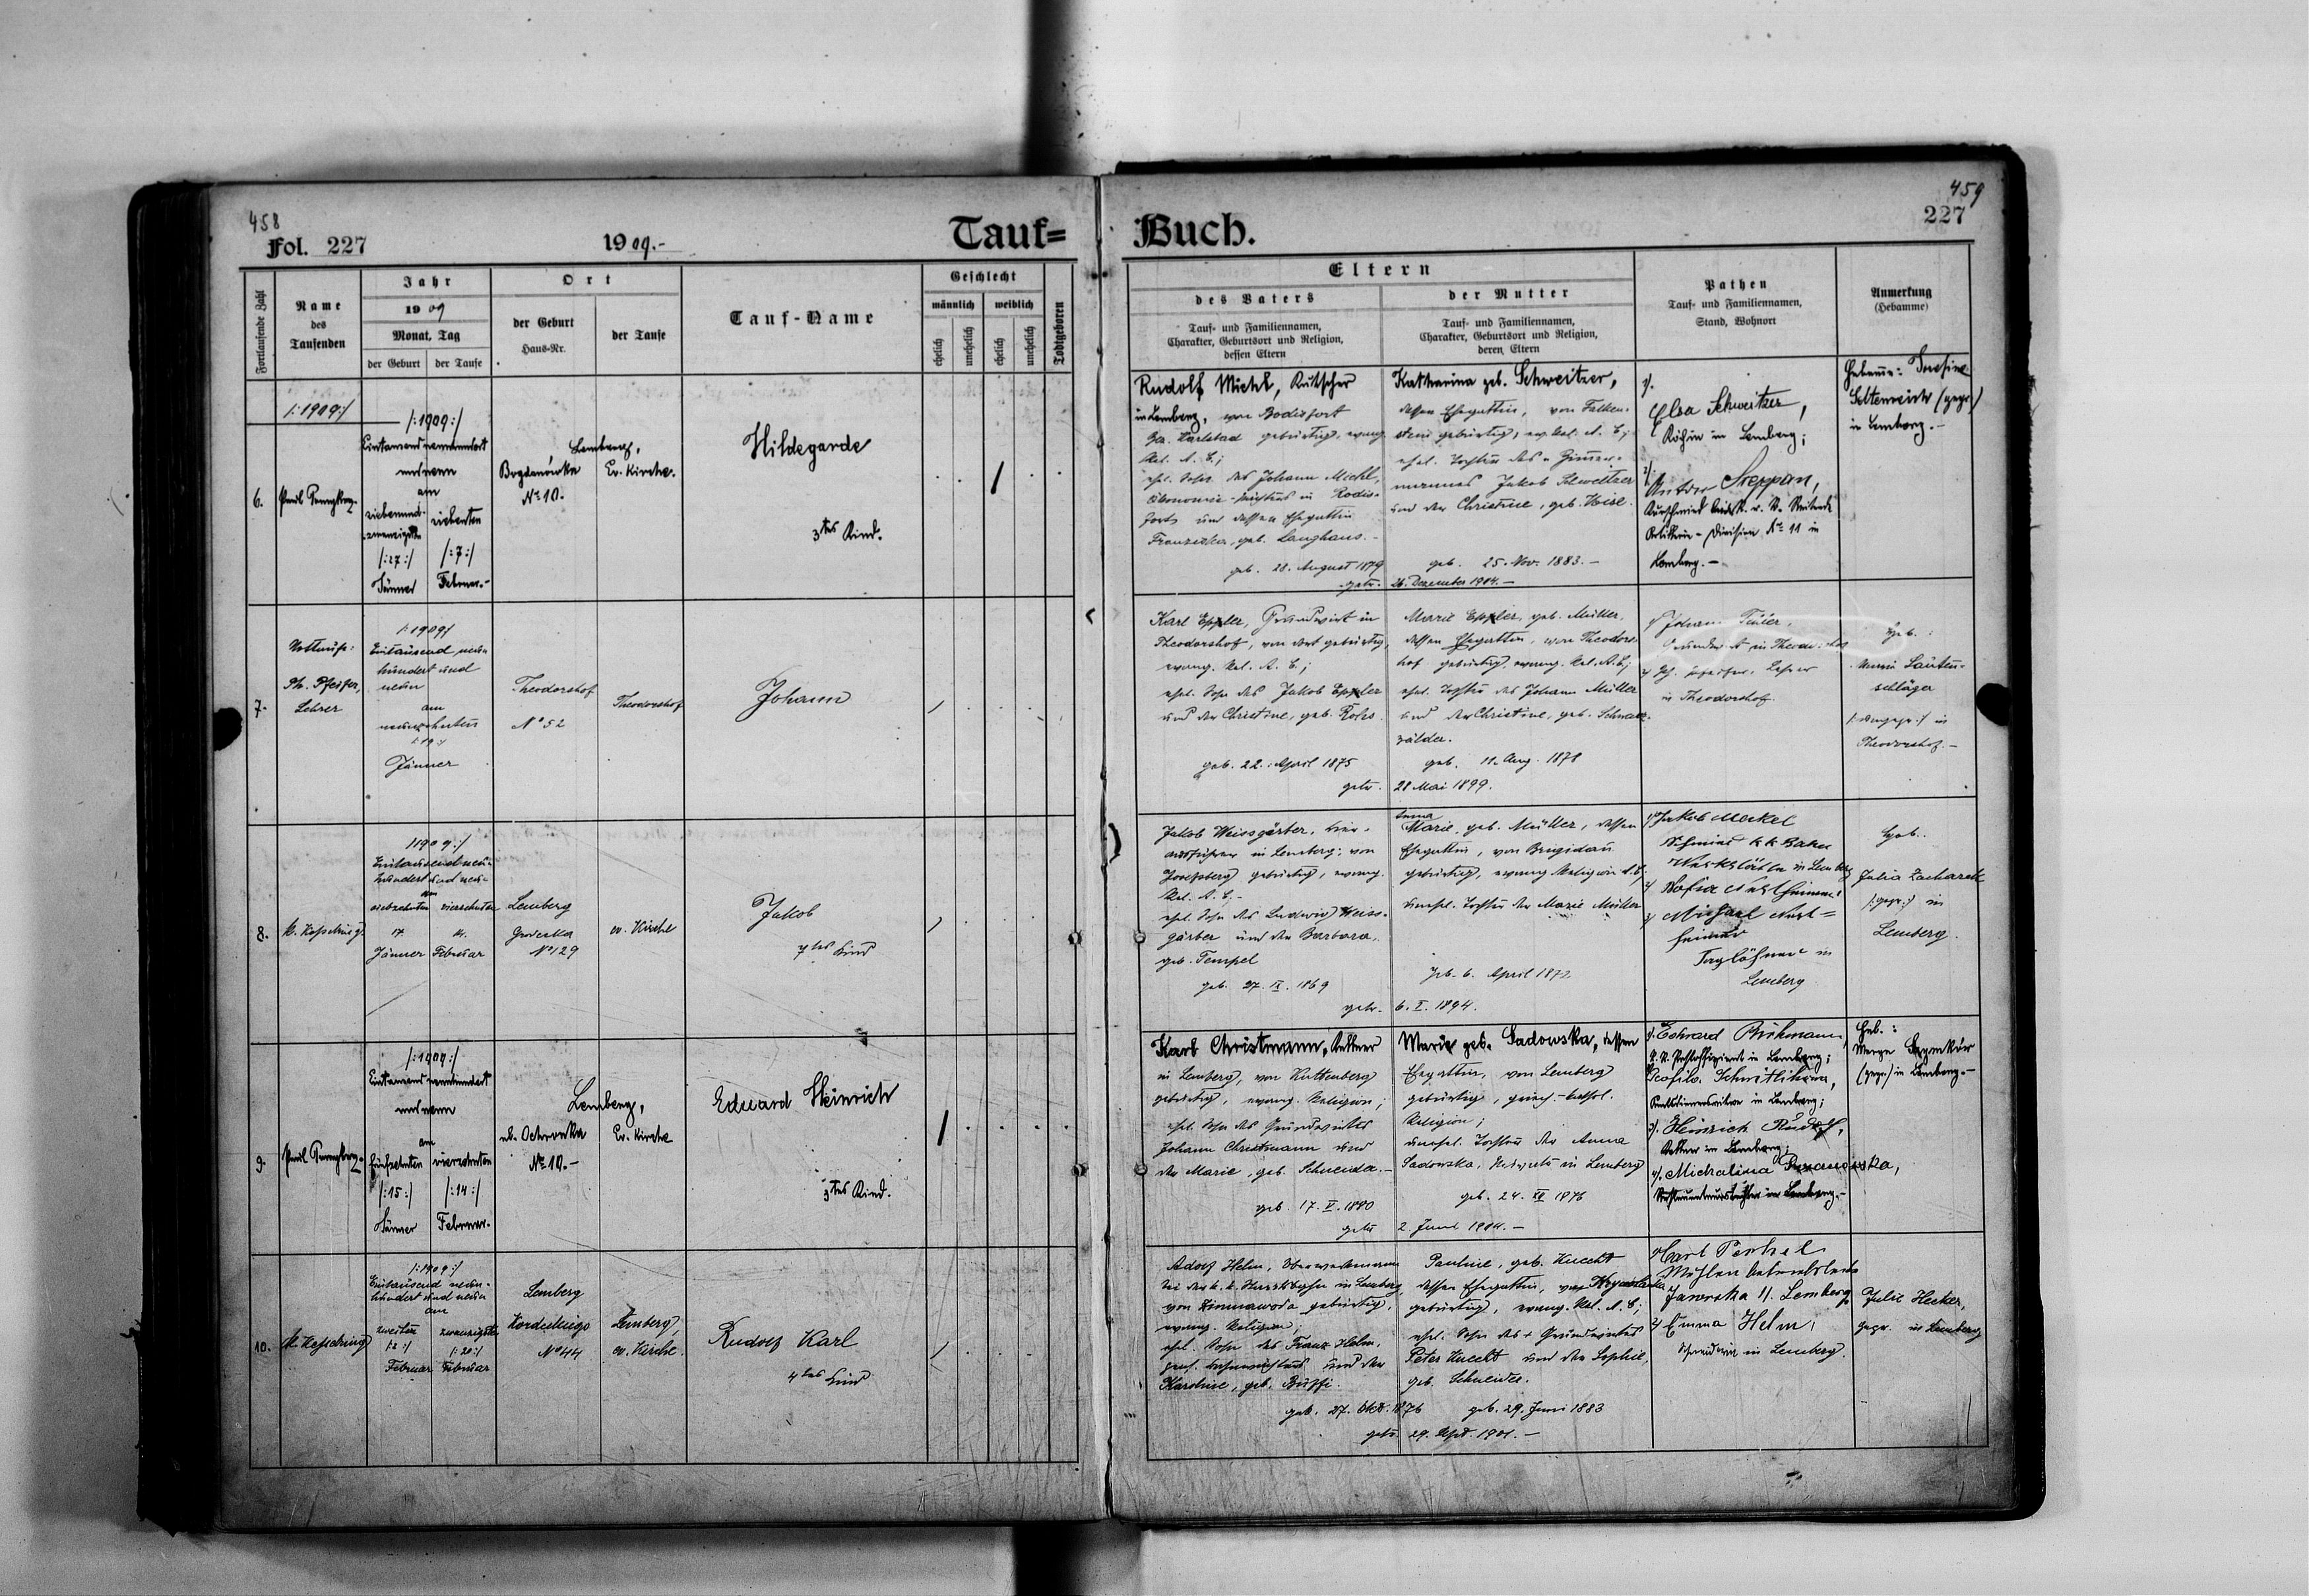 458
Fol. 227
1909.-
Tauf=
Fortlaufende Zahl
Name
des
Taufenden
Jahr
1909
Monat, Tag
der Geburt
der Taufe
Ort
der Geburt
Haus-Nr.
der Taufe
Tauf-Name
Geschlecht
männlich
weiblich
ehelich
unehelich
ehelich
unehelich
Todtgeboren
/:1909:/
6.
/:1909:/
Eintausend neunhundert
und neun
am
siebenund-
zwanzigsten
/:27:/
Jänner
siebenten
/:7:/
Februar.-
Lemberg,
Bogdanówka
No 10.
Ev. Kirche.
Hildegarde
3tes Kind.
7.
Nottaufe:
Ph. Pfeifer,
Lehrer
/:1909/
Eintausend neun
hundert und
neun
am
neunzehnten
/:19:/
Jänner
Theodorshof
No 52
Theodorshof
Johann
8.
/1909:/
Eintausend neun-
hundert und neun
am
siebzehnten
17.
Jänner
vierzehnten
14.
Februar
Lemberg
Grodecka
No 129
ev. Kirche
Jakob
7tes Kind
9.
/:1909:/
Eintausend neunhundert
und neun
am
fünfzehnten
/:15:/
Jänner
vierzehnten
/:14:/
Februar.
Lemberg,
ul. Ochronka
No 10.-
Ev. Kirche
Eduard Heinrich
3tes Kind.
10.
/:1909:/
Eintausend neun-
hundert und neun
am
zweiten
/:2:/
Februar
zwanzigsten
/:20:/
Februar
Lemberg
Kordeckiego
No 44
Lemberg
ev. Kirche.
Rudolf Karl
4tes Kind
459
227
Buch.
Eltern
des Vaters
Tauf- und Familiennamen,
Charakter, Geburtsort und Religion,
dessen Eltern
der Mutter
Tauf- und Familiennamen,
Charakter, Geburtsort und Religion,
deren Eltern
Pathen
Tauf- und Familiennamen,
Stand, Wohnort
Anmerkung
(Hebamme)
Rudolf Michl, Kutscher
in Lemberg, von Rodisfort
Karlsbad gebürtig, evang.
Rel. A. C.;
ehel. Sohn des Johann Michl,
in Rodis-
forts und dessen Ehegattin
Franziska, geb. Langhans.-
geb. 28. August 1879
getr. 26. Dezember 1904.-
Katharina geb. Schweitzer,
dessen Ehegattin, von Falken-
stein gebürtig, ev. Rel. A. C.;
ehel. Tochter des Zimmer-
mannes Jakob Schweitzer
und der Christine, geb.
geb. 25. Nov. 1883.-
1).
Elsa Schweitzer,
Köchin in Lemberg;
2).
Anton Steppan,
Kurschmied
Artillerie-Division No 11 in
Lemberg.-
in Lemberg.-
Karl Eppler, Grundwirt in
Theodorshof, von dort gebürtig,
evang. Rel. A. C.;
ehel. Sohn des Jakob Eppler
und der Christine, geb.
geb. 22. April 1875
getr. 28 Mai 1899.
Marie Eppler, geb. Müller,
dessen Ehegattin, von Theodors-
hof gebürtig, evang. Rel. A. C.;
ehel. Tochter des Johann Müller
und der Christine, geb. Schwarz-
wälder.
geb. 11. Aug. 1878
1) Johann
Grundwirt in Theodorshof
2) Ph. Pfeifer, Lehrer
in Theodorshof
Heb.:
Lauten-
schläger
/:ungepr:/ in
Theodorshof.-
Jakob Weissgärber,
in Lemberg; von
Josefsberg gebürtig, evang.
Rel. A. C.-
ehel. Sohn des Ludwig Weiss-
gärber und der Barbara,
geb. Tempel
geb. 27. IX. 1869
getr. 6. X. 1894.
Marie, geb. Müller, dessen
Ehegattin, von Brigidau
gebürtig, evang. Religion A.C.;
unehel. Tochter der Marie Müller
geb. 6. April 1872
1) Jakob Merkel
Schmied k k Bahn
Werkstätte in Lemberg
2) Sofia
3) Michael
Taglöhner in
Lemberg
Heb.
Julia
/:gepr:/ in
Lemberg.
Karl Christmann, Kellner
in Lemberg, von Kuttenberg
gebürtig, evang. Religion;
ehel. Sohn des Grundwirtes
Johann Christmann und
der Marie, geb. Schneida.-
geb. 17. V. 1880
getr. 2. Juni 1904.-
Marie geb. Sadowska, dessen
Ehegattin, von Lemberg
gebürtig, griech.-kathol.
Religion;
unehel. Tochter der Anna
Sadowska, in Lemberg
geb. 24. 1876
1). Edward
in Lemberg;
in Lemberg;
3). Heinrich Rudolf,
Kellner in Lemberg;
4). Michalina
Heb.:
(gepr.) in Lemberg.-
Adolf Helm,
in Lemberg,
von Zimnawoda gebürtig,
evang. Religion;
ehel. Sohn des Franz Helm,
und der
Karoline, geb.
geb. 27. Okt. 1876
getr. 29. Sept. 1901.-
Pauline, geb. Knecht
dessen Ehegattin, von
gebürtig, evang. Rel. A. C;
ehel. Grundwirtes
Peter Knecht und der Sophie,
geb. Schneider.
geb. 29. Juni 1883
1) Karl
Janowska 11. Lemberg
2) Emma Helm,
in Lemberg.
Julie Hecker,
gepr. in Lemberg